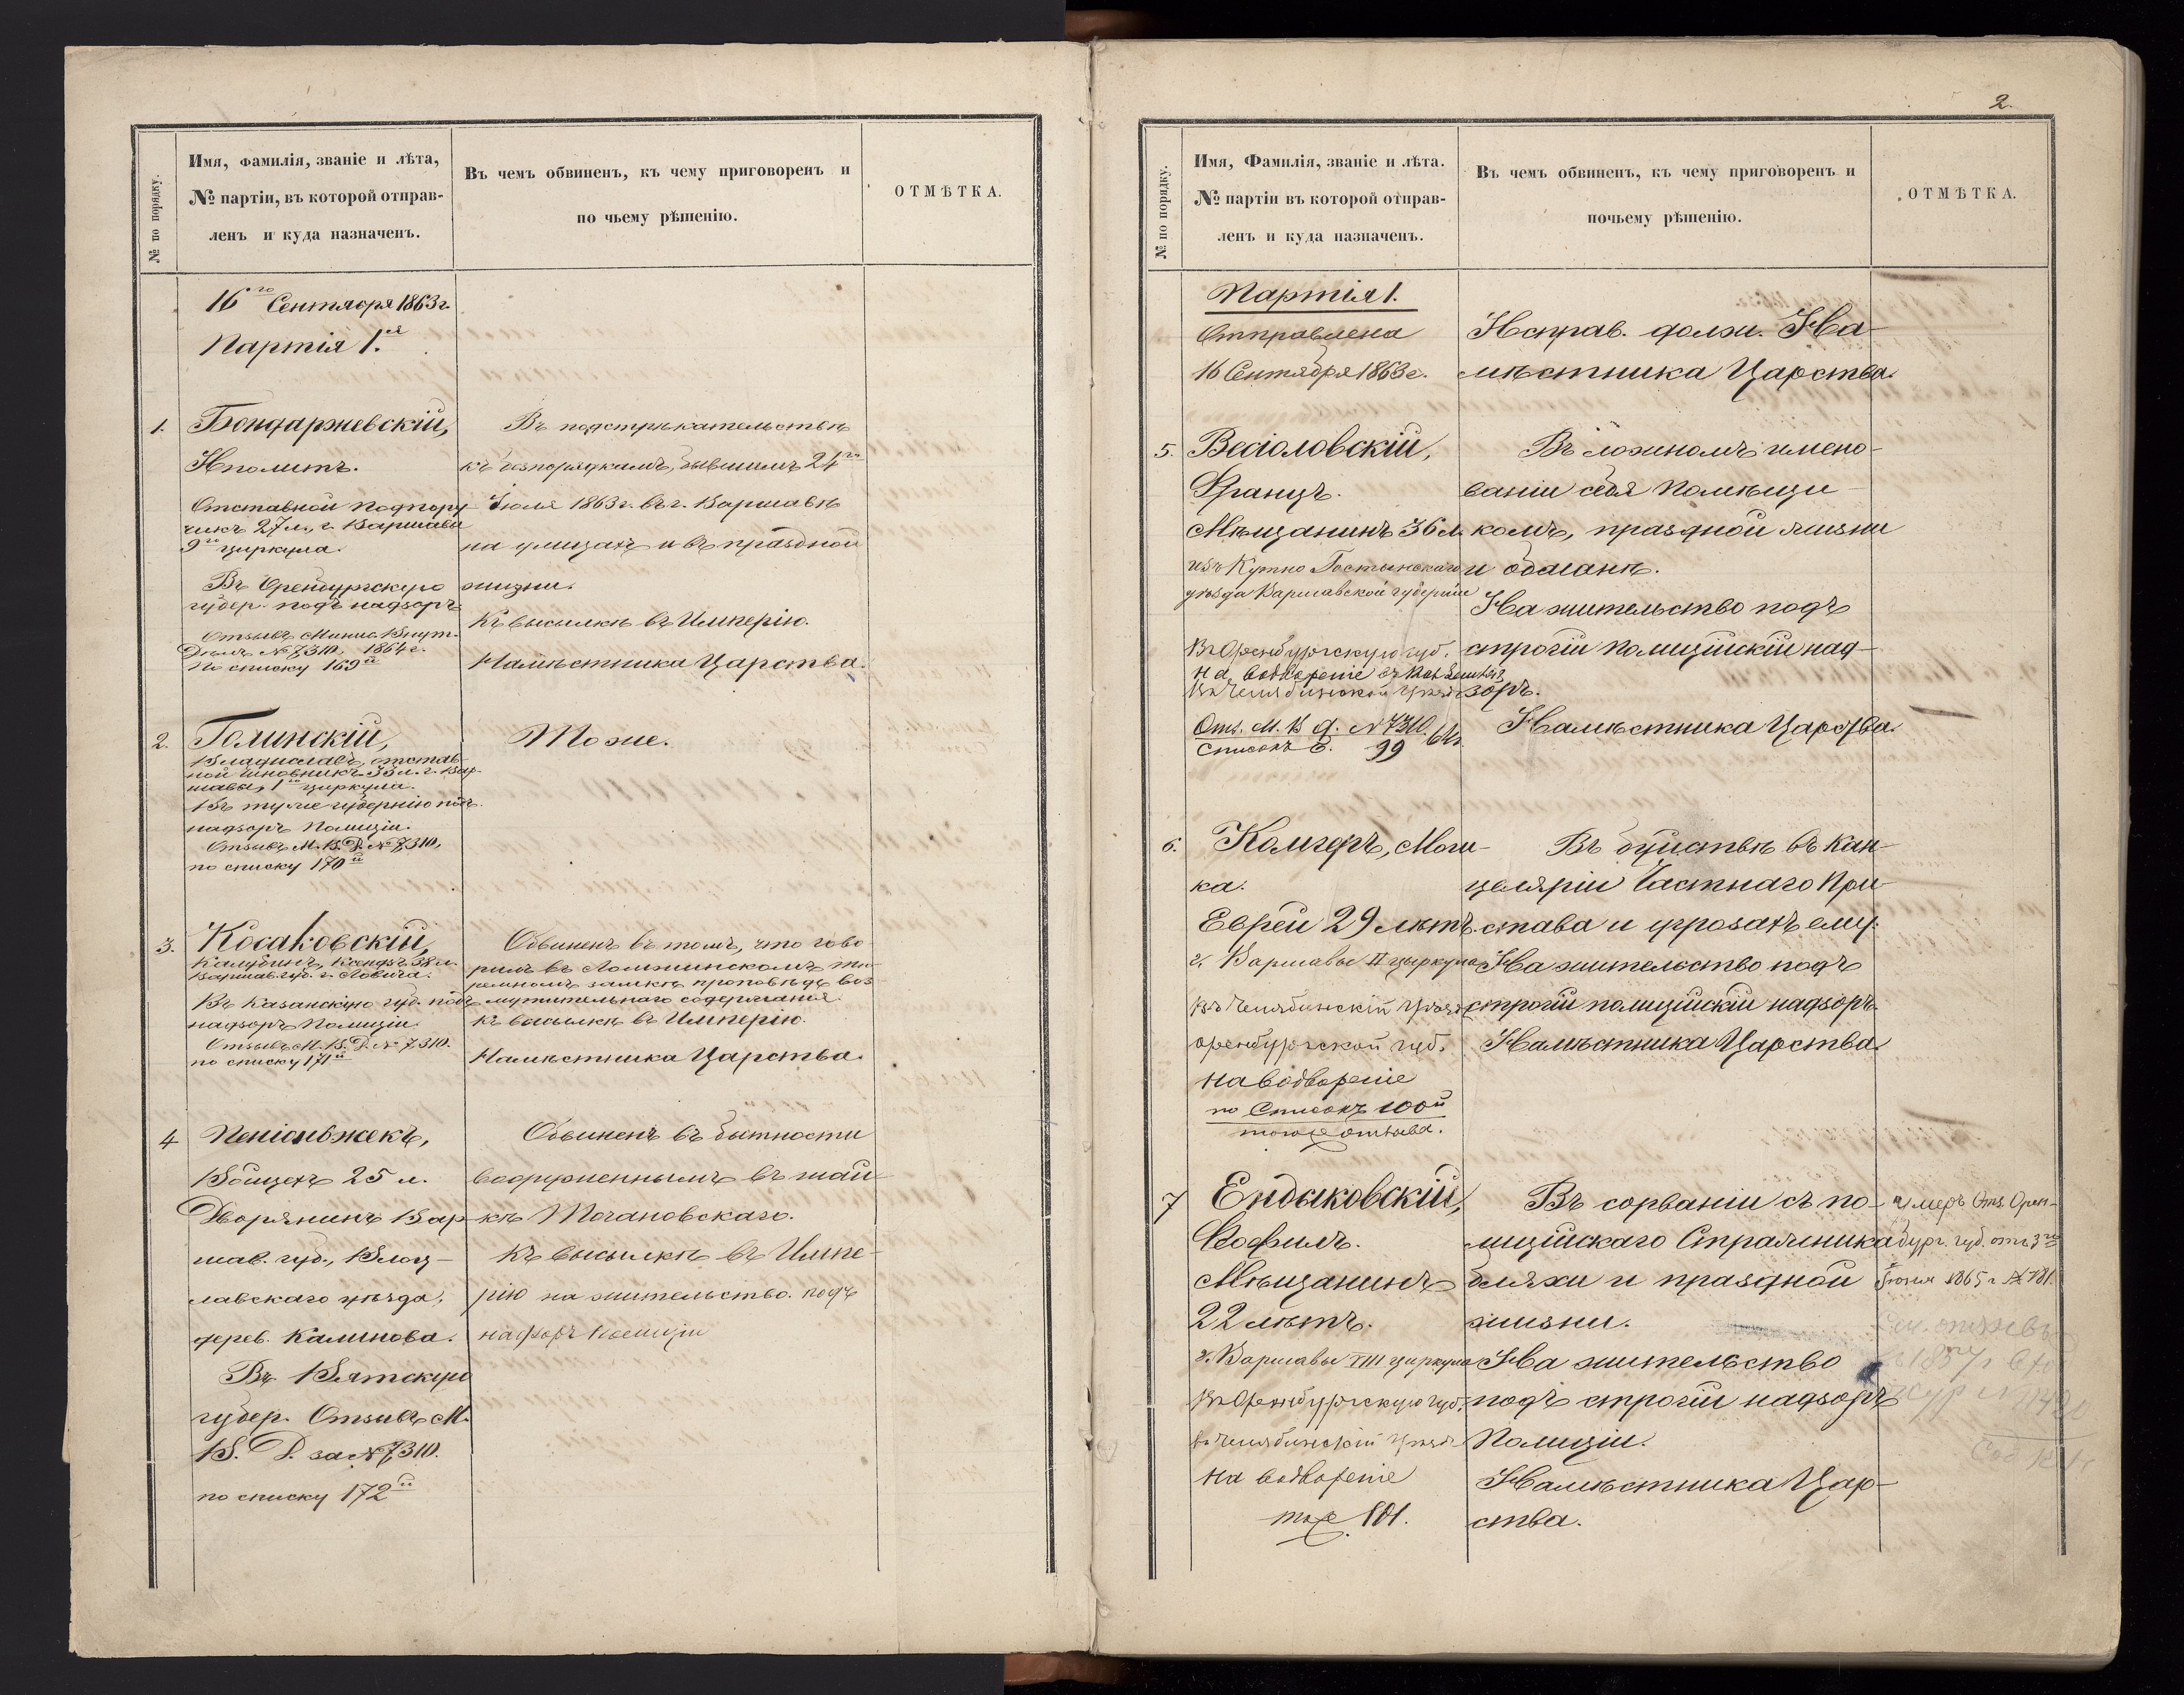 № по порядку.
Имя, фамилія, званіе и лѣта,
№ партіи, въ которой отправ-
ленъ и куда назначенъ.
Въ чемъ обвиненъ, къ чему приговоренъ и
по чьему рѣшенію.
ОТМѢТКА.
16го Сентября 1863 г.
Партія 1.ая
1.
Бондаржевскій,
Иполитъ.
Отставной подпору-
чикъ 27 л., г. Варшавы
9го циркула.
Въ Оренбургскую
губер. подъ надзоръ
Отзывъ Минис. Внут.
Дѣлъ №7,310, 1864 г.
По списку 169й
Въ подстрѣкательствѣ
къ безпорядкамъ, бывшимъ 24го
Іюля 1863 г. въ г. Варшавѣ
на улицахъ и въ праздной
жизни.
Къ высылкѣ въ Имперію.
Намѣстника Царства.
2.
Голинскій,
Владиславъ, отстав-
ной чиновникъ 33 л. г. Вар-
шавы, 1го циркула.
Въ туже губернію подъ
надзоръ Полиціи.
Отзывъ М. В. Д. №7,310,
по списку 170й
Тоже.
3.
Косаковскій,
38 л.
Варшав. губ. г. Ловича.
Въ Казанскую губ. подъ
надзоръ Полиціи.
Отзывъ М. В. Д. № 7,310.
по списку 171й
Обвиненъ въ томъ, что гово-
рилъ въ Ломжинскомъ тю-
ремномъ замкѣ проповѣдь воз-
мутительнаго содержанія.
Къ высылкѣ въ Имперію.
Намѣстника Царства.
4
Войцехъ 25 л.
Дворянинъ Вар-
шав. губ., Влоц-
лавскаго уѣзда,
дерев. Калинова.
Въ Вятскую
губер. Отзывъ М.
В. Д. за №7,310.
по списку 172й
Обвиненъ въ бытности
вооруженнымъ въ шай-
кѣ Точановскаго.
Къ высылкѣ въ Импе-
рію на жительство. подъ
надзоръ полиціи
2.
№ по порядку.
Имя, Фамилія, званіе и лѣта.
№ партіи въ которой отправ-
ленъ и куда назначенъ.
Въ чемъ обвиненъ, къ чему приговоренъ и
почьему рѣшенію.
ОТМѢТКА.
Партія 1.
Отправлена
16 Сентября 1863 г.
Исправ. долж. На-
мѣстника Царства.
5.
Весіоловскій,
Францъ.
Мѣщанинъ 36 л.
изъ Кутно Гостынскаго
уѣзда Варшавской губерніи
Въ Оренбургскую губ.
на водвореніе
въ Челябинской уѣздъ
Отз. М. В. Д. №7310. 64 г.
Списокъ 99
Въ ложномъ имено-
ваніи себя Помѣщи-
комъ, праздной жизни
и обманѣ.
На жительство подъ
строгій Полиційскій над-
зоръ.
Намѣстника Царства.
6.
Колгеръ, Моти-
ка.
Еврей 29 лѣтъ.
г. Варшавы II цыркула
въ Челябинскій уѣздъ
оренбургской губ.
на водвореніе
по Списокъ 100й
тогоже отзыва.
Въ буйствѣ въ Кан-
целяріи Частнаго При-
става и угрозахъ ему.
На жительство подъ
строгій полиційскій надзоръ.
Намѣстника Царства.
7
Ендыковскій,
Теофилъ.
Мѣщанинъ
22 лѣтъ.
г. Варшавы VIII циркула
Въ Оренбургскую губ.
въ Челябинскій уѣздъ
на водвореніе
тоже 101.
Въ сорваніи съ по-
лиційскаго Стражника
бляхи и праздной
жизни.
На жительство
подъ строгій надзоръ
Полиціи.
Намѣстника Цар-
ства.
умеръ Отз. Орен-
бург. губ. отъ 3го
Іюня 1865 г № 781.